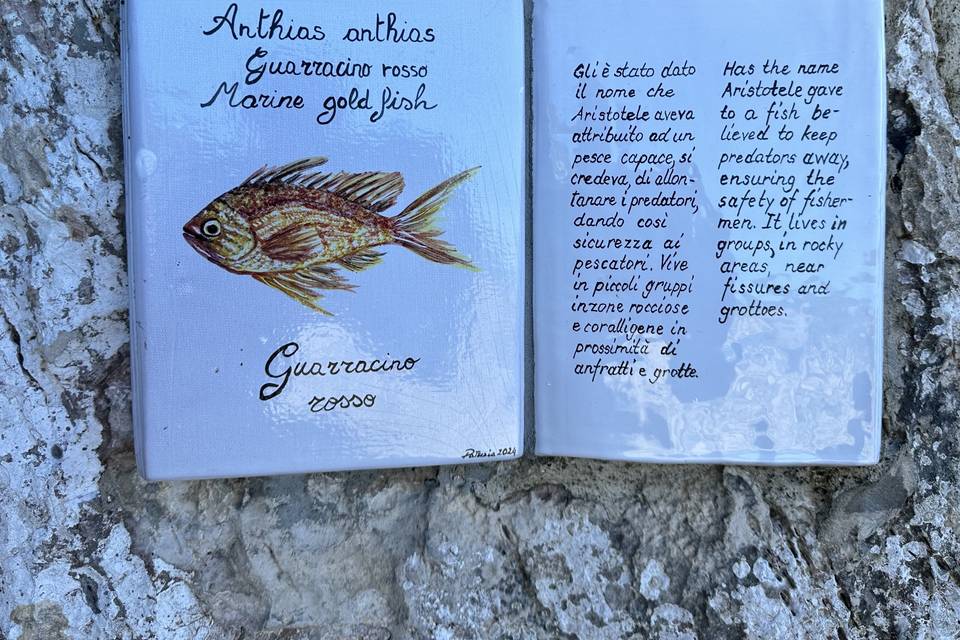 Anthias anthias
Guarracino rosso
Marine gold fish
Guarracino
rosso
2024
Gli è stato dato
il nome che
Aristotele aveva
attribuito ad un
pesce capace, si
credeva, di allon-
tanare i predatori,
dando così
sicurezza ai
pescatori. Vive
in piccoli gruppi
in zone rocciose
e coralligene in
prossimità di
anfratti e grotte.
Has the name
Aristotele gave
to a fish be-
lieved to keep
predators away,
ensuring the
safety of fisher-
men. It lives in
groups, in rocky
areas, near
fissures and
grottoes.